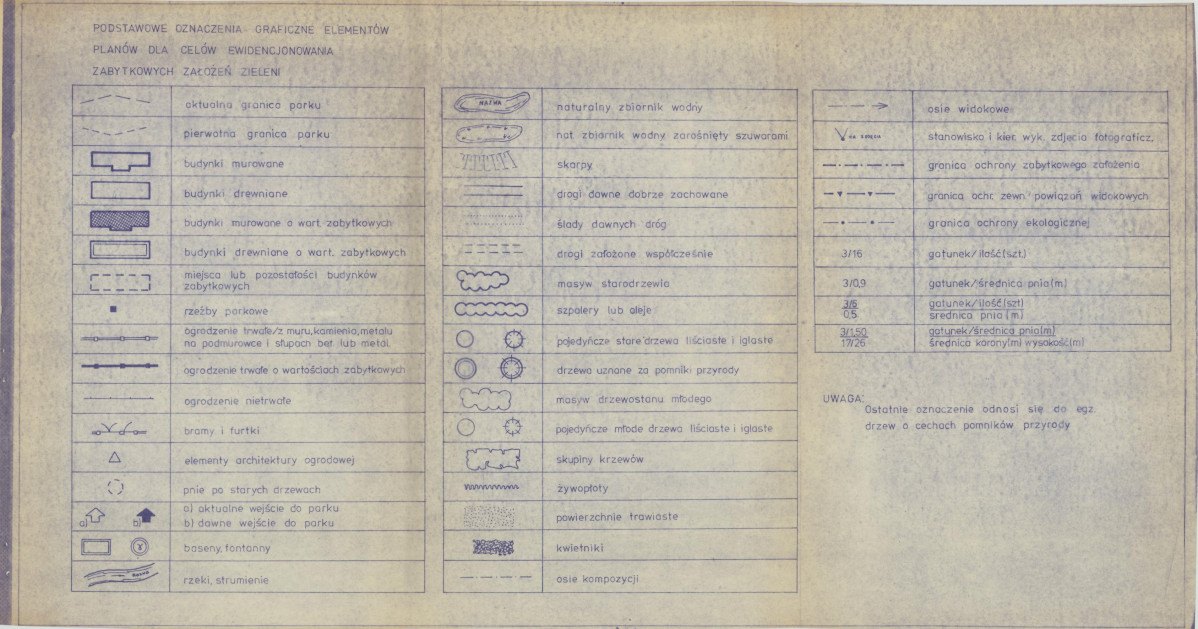 PODSTAWOWE OZNACZENIA GRAFICZNE ELEMENTÓW
PLANÓW DLA CELÓW EWIDENCJONOWANIA
ZABYTKOWYCH ZAŁOŻEŃ ZIELENI
aktualna granica parku
pierwotna granica parku
budynki murowane
budynki drewniane
budynki murowane o wart. zabytkowych
budynki drewniane o wart. zabytkowych
miejsca lub pozostałości budynków
zabytkowych
rzeźby parkowe
ogrodzenie trwałe/z muru, kamienia, metalu
na podmurowce i słupach bet. lub metal.
ogrodzenie trwałe o wartościach zabytkowych
ogrodzenie nietrwałe
bramy i furtki
elementy architektury ogrodowej
pnie po starych drzewach
a) b)
a) aktualne wejście do parku
b) dawne wejście do parku
baseny, fontanny
rzeki, strumienie
NAZWA
naturalny zbiornik wodny
nat zbiornik wodny zarośnięty szuwarami
skarpy
drogi dawne dobrze zachowane
ślady dawnych dróg
drogi założone współcześnie
masyw starodrzewia
szpalery lub aleje
pojedyńcze stare drzewa liściaste i iglaste
drzewa uznane za pomniki przyrody
masyw drzewostanu młodego
pojedyńcze młode drzewa liściaste i iglaste
skupiny krzewów
żywopłoty
powierzchnie trawiaste
kwietniki
osie kompozycji
osie widokowe
stanowisko i kier. wyk. zdjęcia fotograficz.
granica ochrony zabytkowego założenia
granica ochr. zewn. powiązań widokowych
granica ochrony ekologicznej
3/16 gatunek/ilość(szt.)
3/0,9 gatunek/średnica pnia(m)
3/6 gatunek/ilość(szt)
0,5 średnica pnia(m)
3/1,50 gatunek/średnica pnia(m)
17/26 średnica korony(m) wysokość(m)
UWAGA:
Ostatnie oznaczenie odnosi się do egz.
drzew o cechach pomników przyrody